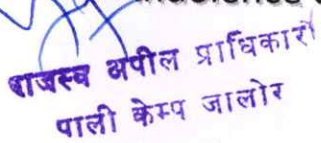 राजस्व अपील प्राधिकारी
पाली केम्प जालोर